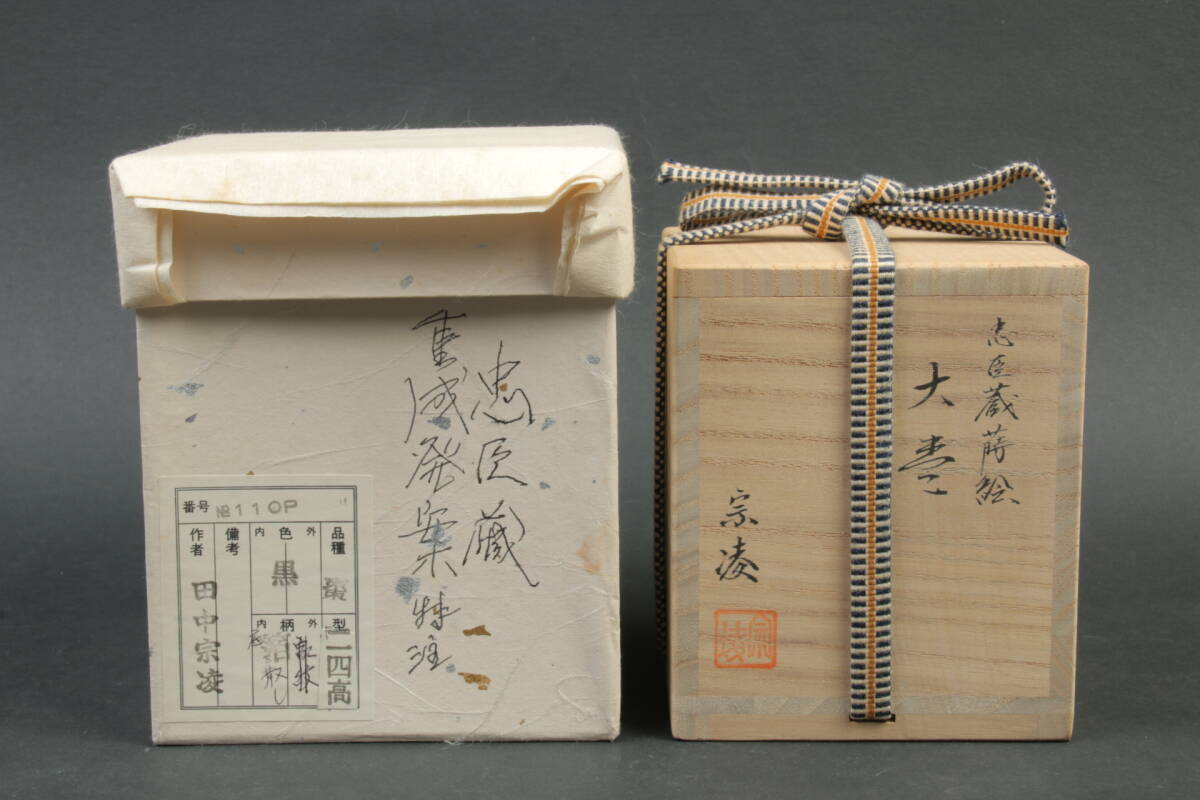 忠臣蔵
重成発案特注
番号 №110P
品種 棗
型 二四高
外 色 内
黒
外 柄 内
散し
備考
作者
田中宗凌
忠臣蔵蒔絵
大棗
宗凌